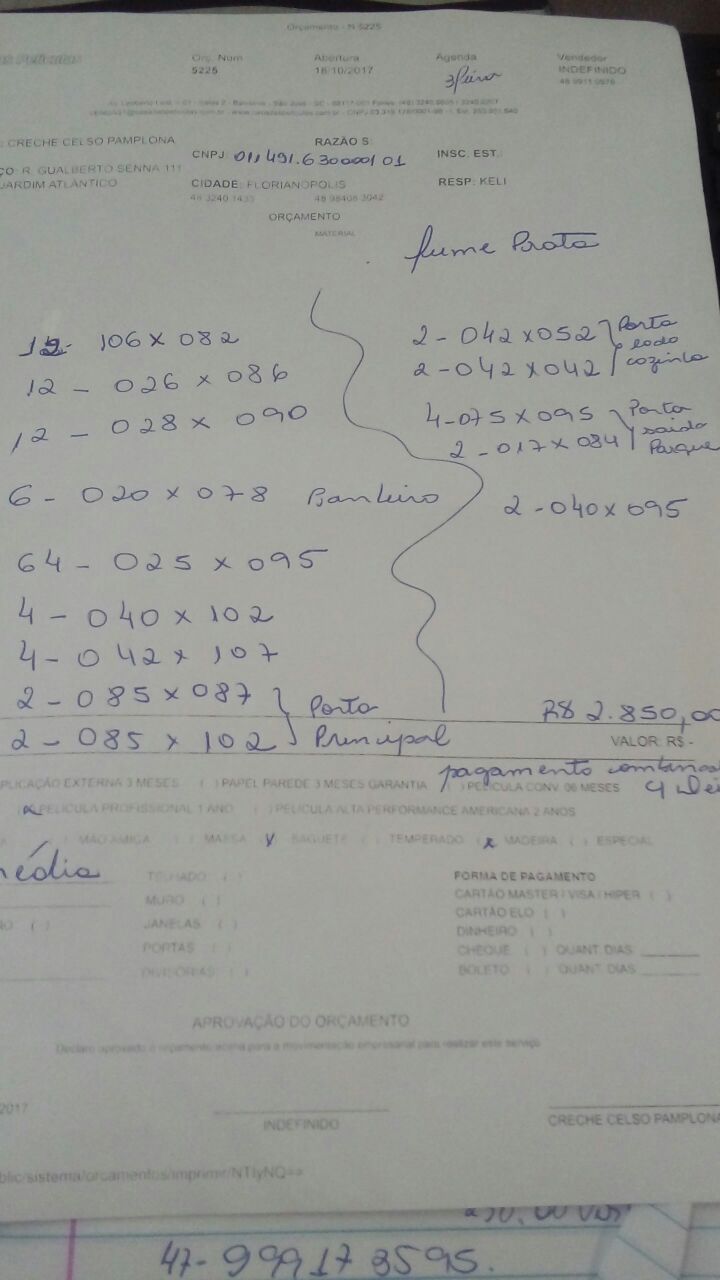 Orçamento - N 5225
Orç. Num Abertura Agenda Vendedor
5225 18/10/2017 3ª feira INDEFINIDO
48 9911 0978
: CRECHE CELSO PAMPLONA RAZÃO S:
CNPJ: 011491.630000101 INSC. EST.:
ÇO: R. GUALBERTO SENNA 111
JARDIM ATLÂNTICO CIDADE: FLORIANOPOLIS RESP: KELI
48 3240 1433 48 98408 3042
ORÇAMENTO
MATERIAL
fume Prata
12 - 106 x 082
12 - 026 x 086
12 - 028 x 090
6 - 020 x 078 Banheiro
64 - 025 x 095
4 - 040 x 102
4 - 042 x 107
2 - 085 x 087 Porta
2 - 085 x 102 Principal
2 - 042 x 052 Porta
2 - 042 x 042 lado cozinha
4 - 075 x 095 Porta
saida
2 - 017 x 084 Parque
2 - 040 x 095
R$ 2.850,00
VALOR: R$ -
pagamento
PLICAÇÃO EXTERNA 3 MESES ( ) PAPEL PAREDE 3 MESES GARANTIA ( ) PELICULA CONV. 06 MESES
x PELICULA PROFISSIONAL 1 ANO ( ) PELICULA ALTA PERFORMANCE AMERICANA 2 ANOS
MÃO AMIGA ( ) MASSA BAGUETE ( ) TEMPERADO x MADEIRA ( ) ESPECIAL
média
TELHADO ( )
MURO ( )
JANELAS ( )
PORTAS ( )
DIVISÓRIAS ( )
FORMA DE PAGAMENTO
CARTÃO MASTER / VISA / HIPER ( )
CARTÃO ELO ( )
DINHEIRO ( )
CHEQUE ( ) QUANT. DIAS
BOLETO ( ) QUANT. DIAS
APROVAÇÃO DO ORÇAMENTO
Declaro aprovado o orçamento acima para a movimentação empresarial para realizar este serviço
2017
INDEFINIDO CRECHE CELSO PAMPLONA
blic/sistema/orcamentos/imprimir/NTIyNQ==
47- 999173595.